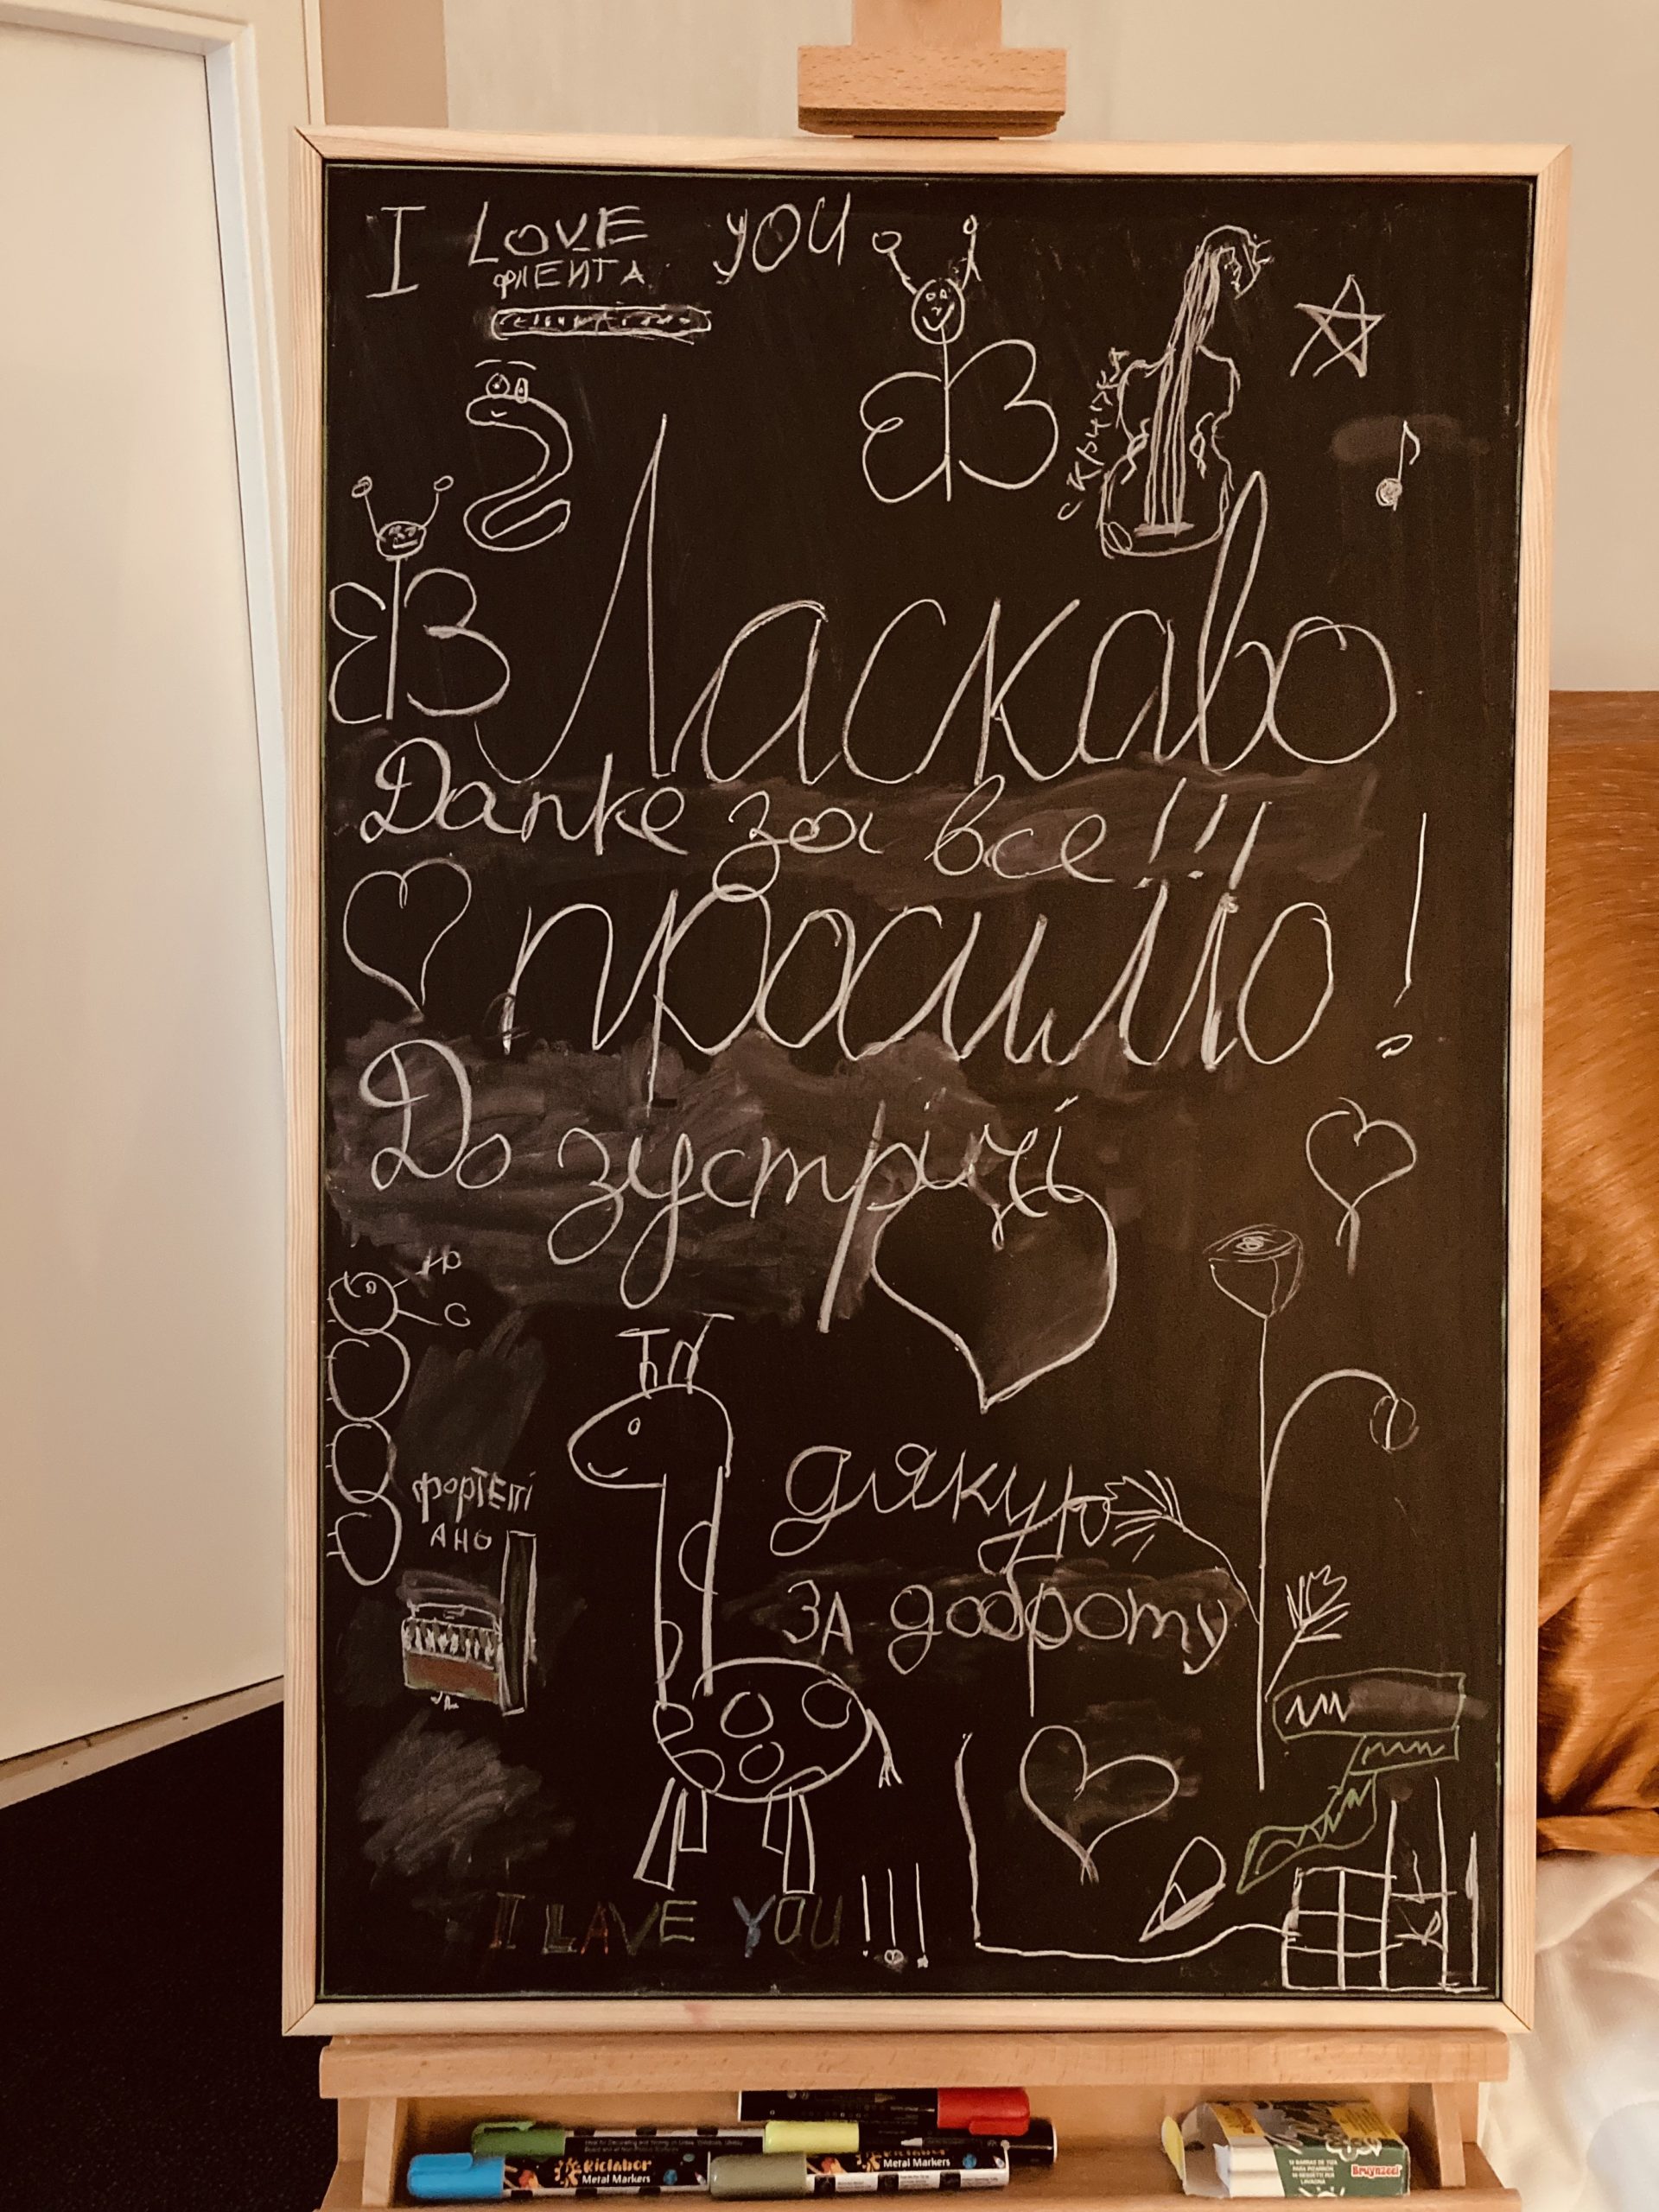 I LOVE YOU
флЕИТА
скрипка
Ласкаво
Danke за все!!!
просимо!
До зустрічі
фортепі
АНО
дякую
ЗА доброту
I LAVE YOU!!!
Riclahor
Metal Markers
Metal Markers
Bruynzeel